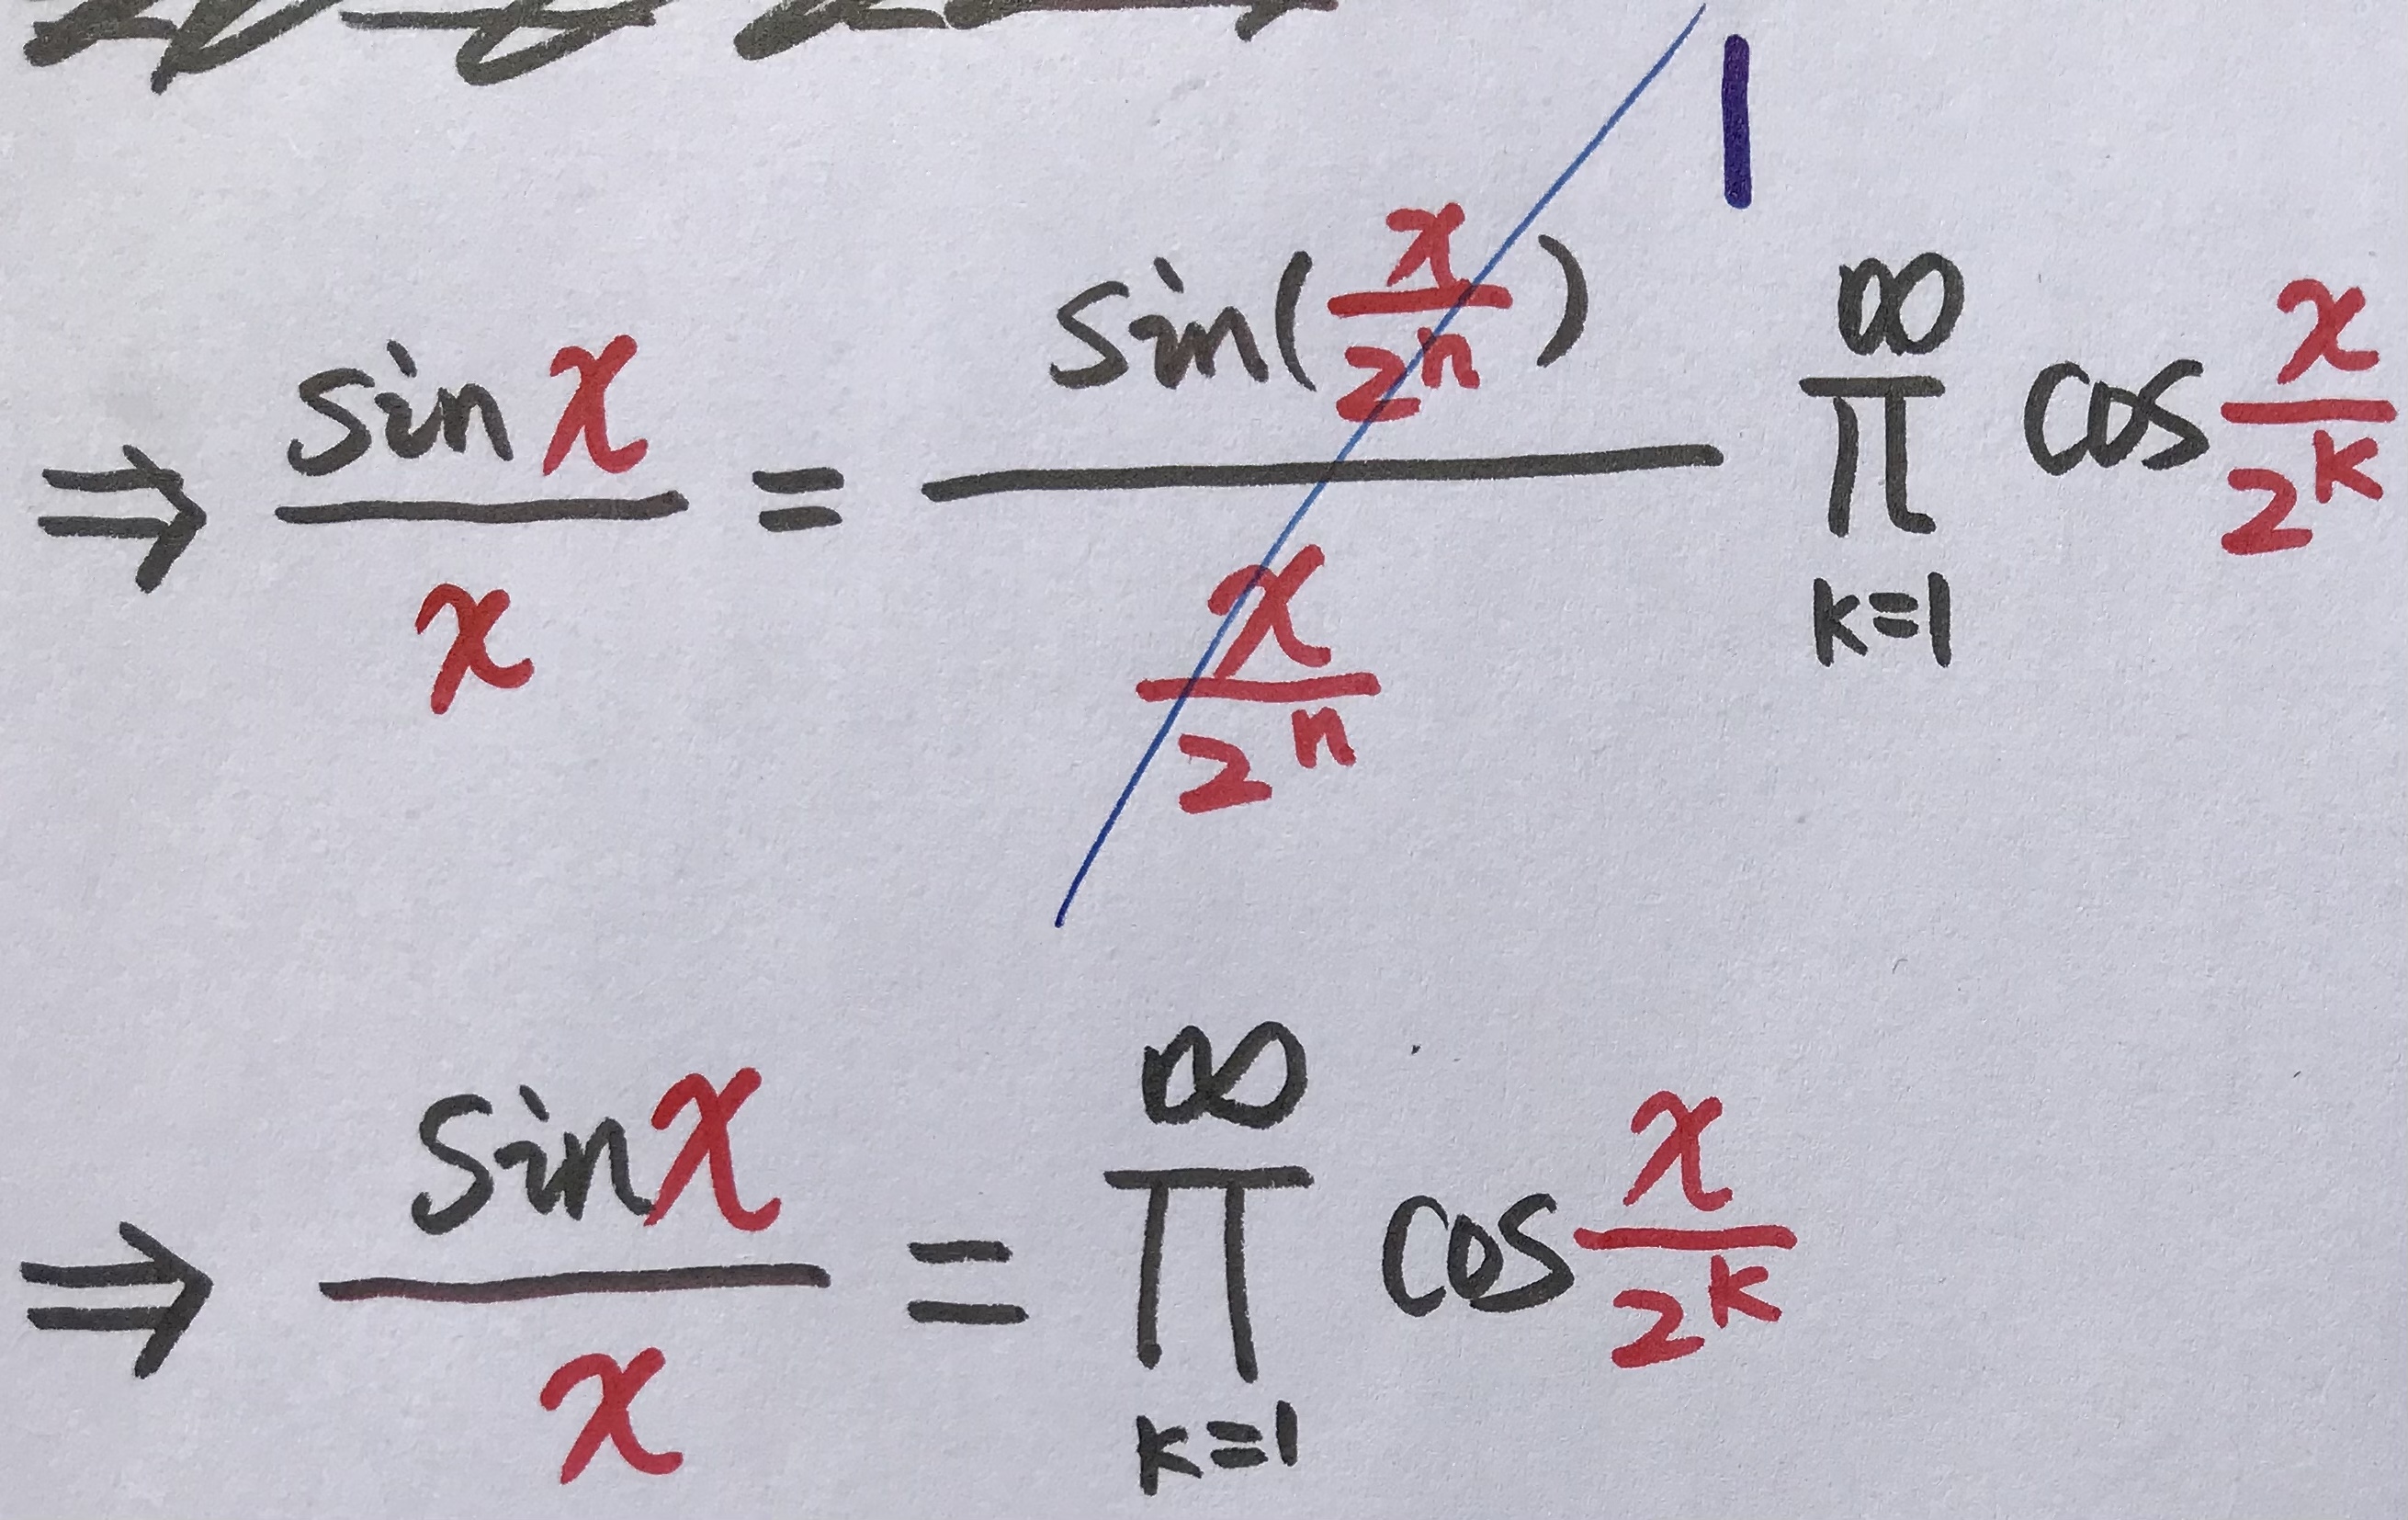 ⇒ sin x / x = sin(x/2^n) / (x/2^n) 1 ∞ ∏ k=1 cos x/2^k
⇒ sin x / x = ∞ ∏ k=1 cos x/2^k